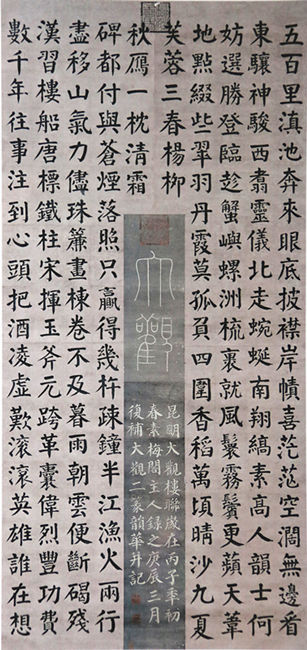 五百里滇池奔來眼底披襟岸幘喜茫茫空闊無邊看
東驤神駿西翥靈儀北走蜿蜒南翔縞素高人韻士何
妨選勝登臨趁蟹嶼螺洲梳裹就風鬟霧鬢更蘋天葦
地點綴些翠羽丹霞莫孤負四圍香稻萬頃晴沙九夏
芙蓉三春楊柳
數千年往事注到心頭把酒凌虛歎滾滾英雄誰在想
漢習樓船唐標鐵柱宋揮玉斧元跨革囊偉烈豐功費
盡移山氣力儘珠簾畫棟卷不及暮雨朝雲便斷碣殘
碑都付與蒼煙落照只贏得幾杵疎鐘半江漁火兩行
秋鴈一枕清霜
大觀
昆明大觀樓聯歲在丙子年初
春素梅閣主人錄之庚辰三月
復補大觀二篆韻華并記